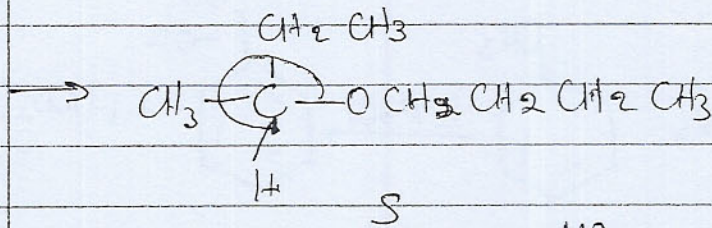 CH2 CH3
→ CH3 — C — O CH2 CH2 CH2 CH3
H
S